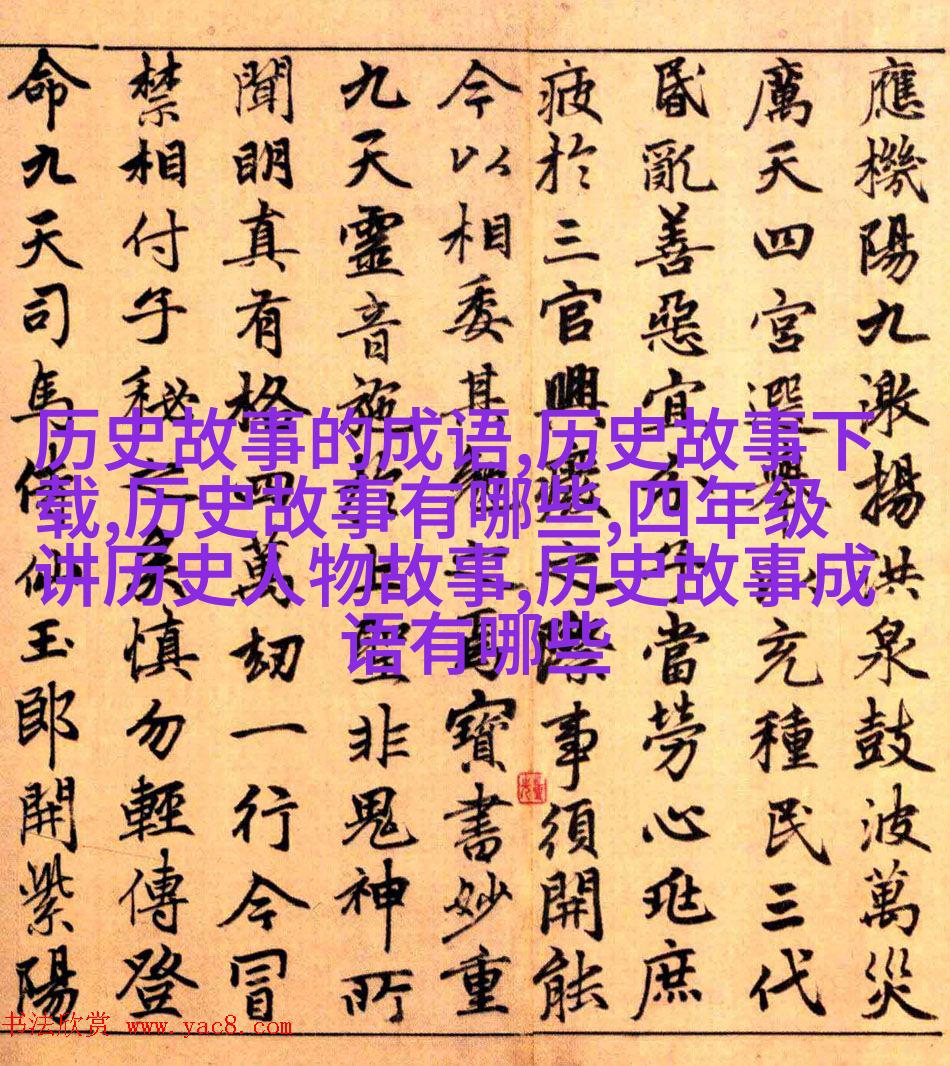 历史故事的成语,历史故事下
载,历史故事有哪些,四年级
讲历史人物故事,历史故事成
语有哪些
應機陽九激揚洪泉鼓波萬災
厲天四宮選充種民三代
昏亂善惡宜分當勞心庶
疲於三官興廢之際事須開能
今以相委其寶書妙重
九天靈音施上聖非鬼神所
聞明真有格四萬劫一行今冒
禁相付子秘之矣慎勿輕傳登
命九天司馬侍仙玉郎開紫陽
书法欣赏 www.yac8.com